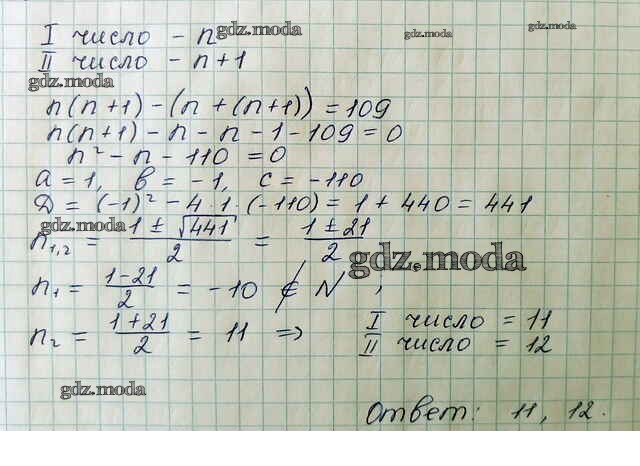 I число – n
gdz.moda
gdz.moda
gdz.moda
II число – n+1
gdz.moda
n(n+1) – (n + (n+1)) = 109
n(n+1) – n – n – 1 – 109 = 0
n² – n – 110 = 0
a = 1, b = –1, c = –110
D = (–1)² – 4·1·(–110) = 1 + 440 = 441
gdz.moda
n₁,₂ = (1 ± √441)/2 = (1 ± 21)/2
gdz.moda
n₁ = (1–21)/2 = –10 ∉ N ;
n₂ = (1+21)/2 = 11 ⇒ I число = 11
II число = 12
gdz.moda
Ответ: 11, 12.